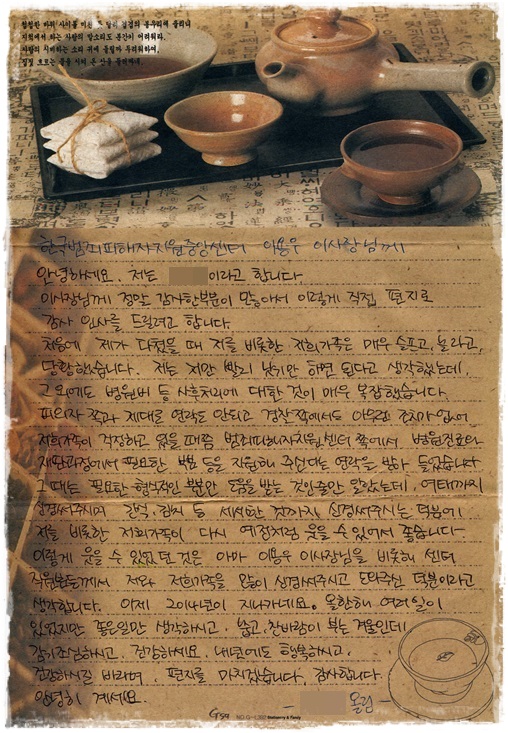 첩첩한 바위 사이를 미친 듯 달려 겹겹의 봉우리에 울리니
지척에서 하는 사람의 말소리도 분간이 어려워라.
사람의 시비하는 소리 귀에 들릴까 두려워하여,
짐짓 흐르는 물을 시켜 온 산을 둘러싸네.
한국범죄피해자지원중앙센터 이용우 이사장님께
안녕하세요. 저는 이라고 합니다.
이사장님께 정말 감사한부분이 많아서 이렇게 직접 편지로
감사 인사를 드릴려고 합니다.
처음에 제가 다쳤을 때 저를 비롯한 저희가족은 매우 슬프고, 놀라고,
당황했습니다. 저는 저만 빨리 낫기만 하면 된다고 생각했는데,
그 외에도 병원비 등 사후처리에 대한 것이 매우 복잡했습니다.
피의자 쪽과 제대로 연락도 안되고 경찰쪽에서도 아무런 조치가 없어
저희가족이 걱정하고 있을때쯤 범죄피해자지원센터 쪽에서 병원진료와
재판과정에서 필요한 법 등을 지원해 주신다는 연락을 받아 들었습니다
그때는 필요한 형식적인 부분만 도움을 받는 것인줄만 알았는데, 여태까지
신경써주시며 김치 등 세세한 것까지 신경써주시는 덕분에
저를 비롯한 저희가족이 다시 예전처럼 웃을 수 있어서 좋습니다.
이렇게 웃을 수 있었던 것은 아마 이용우 이사장님을 비롯해 센터
직원분들께서 저와 저희가족을 많이 신경써주시고 도와주신 덕분이라고
생각합니다. 이제 2014년이 지나가네요. 올한해 여러일이
있었지만 좋은일만 생각하시고, 춥고, 찬바람이 부는 겨울인데
감기조심하시고, 건강하세요. 내년에도 행복하시고,
건강하시길 바라며, 편지를 마치겠습니다. 감사합니다.
안녕히 계세요.
- 올림 -